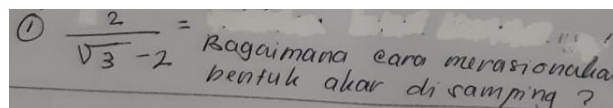 ① 2/(√3 - 2) =
Bagaimana cara merasionalka
bentuk akar di samping ?